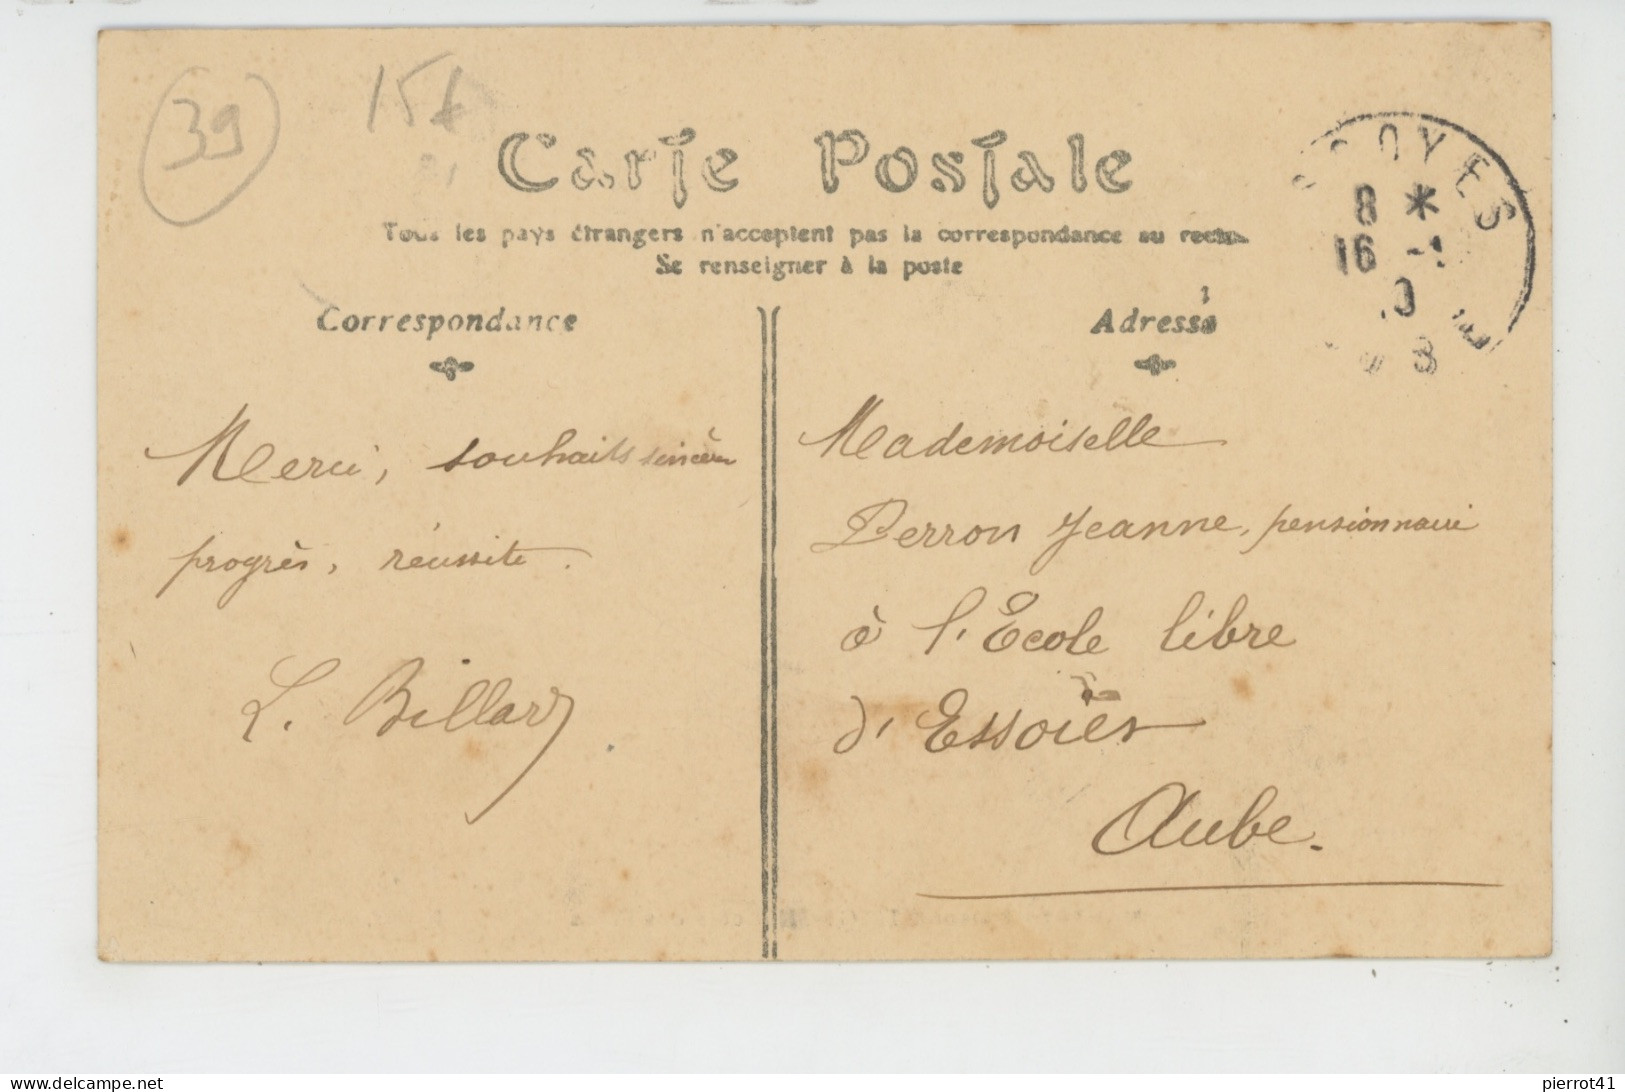 39
15f
Carte Postale
Tous les pays étrangers n'acceptent pas la correspondance au recto
Se renseigner à la poste
Correspondance
Adresse
OYES
8 *
16 -1
Merci, souhaits sincères
progrès, réussite.
L. Billard
Mademoiselle
Perron Jeanne, pensionnaire
à l'Ecole libre
d'Essoies
Aube.
pierrot41